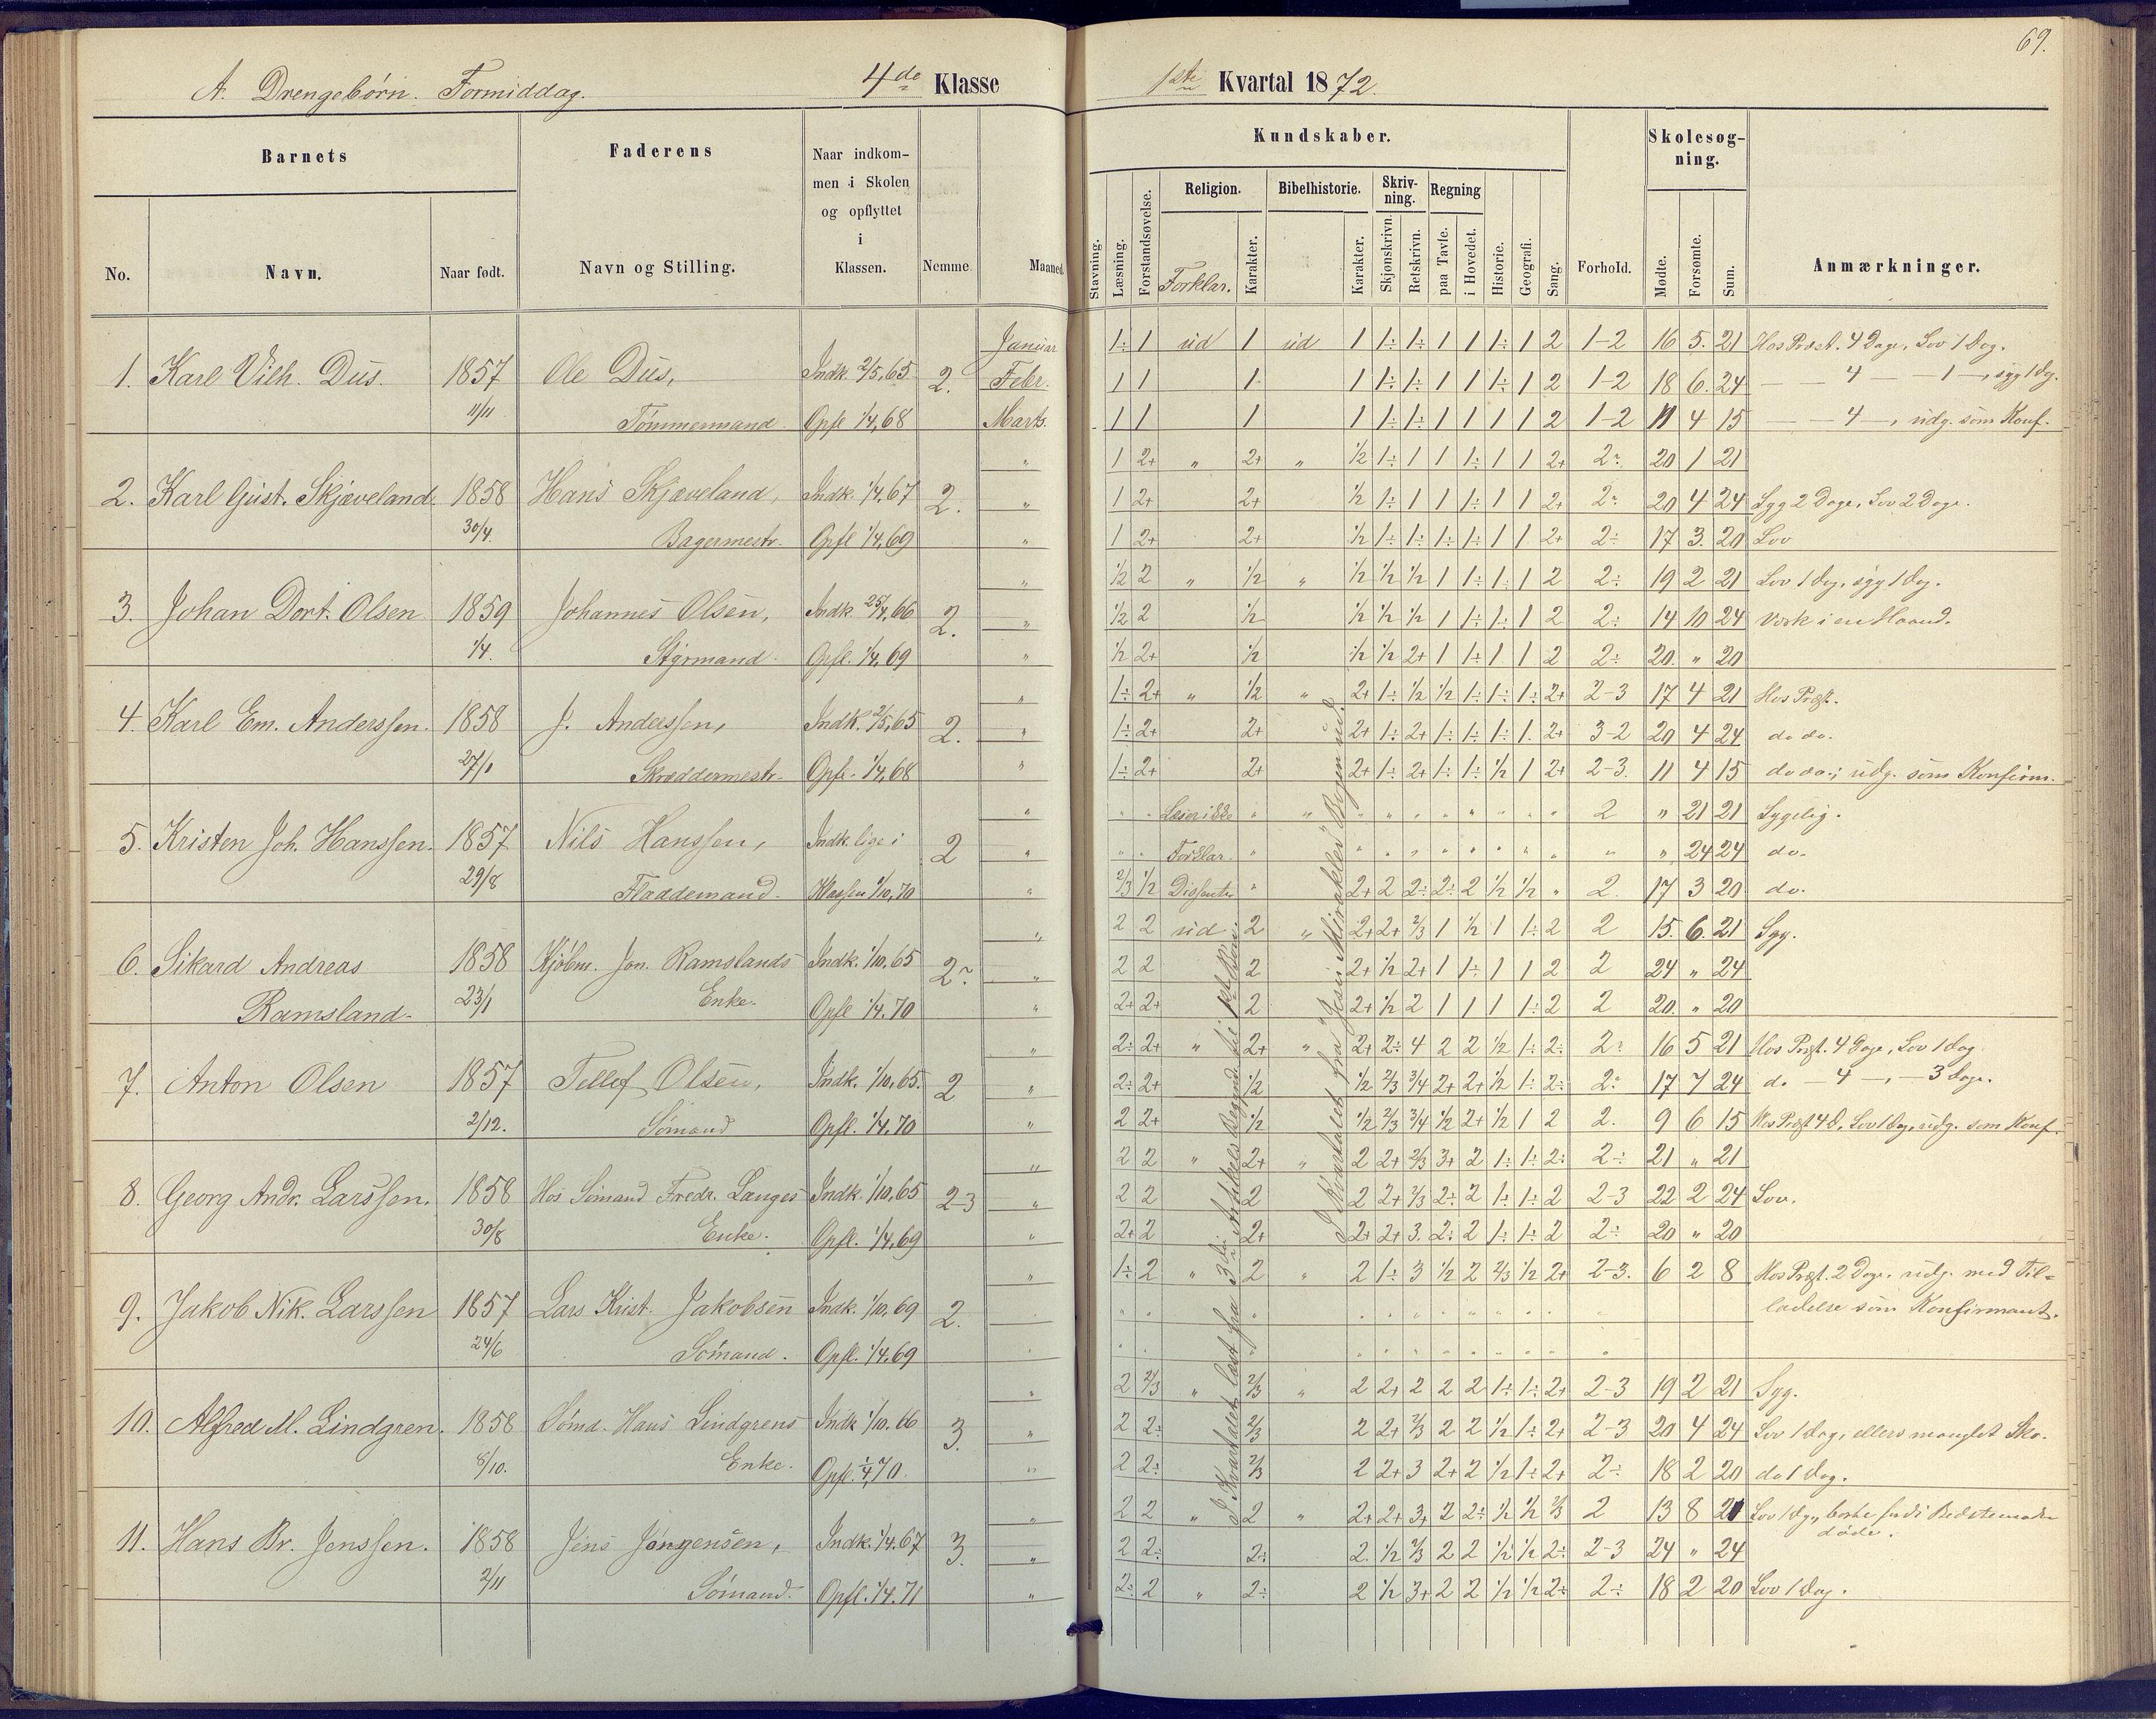 69.
A. Drengebørn. Formiddag. 4de Klasse 1ste Kvartal 1872.
Barnets Faderens Naar indkommen i Skolen og opflyttet i Klassen. Nemme Maaned
No. Navn. Naar født. Navn og Stilling.
Kundskaber. Skolesøgning.
Stavning. Læsning. Forstandsøvelse. Religion. Forklar. Karakter. Bibelhistorie. Karakter. Skrivning. Skjønskrivn. Retskrivn. Regning paa Tavle. i Hovedet. Historie. Geografi. Sang. Forhold. Mødte. Forsømte. Sum. Anmærkninger.
1. Karl Vilh. Dus. 1857 11/11 Ole Dus, Tømmermand Indk. 2/5,65 Opfl 1/4,68 2.
Januar 1÷ 1 ud 1 ud 1 1÷ 1÷ 1 1 1÷ 1 2 1-2 16 5. 21 Hos Præst. 4 Dage, Lov 1 Dag.
Febr. 1 1 1 1 1÷ 1÷ 1 1 1÷ 1 2 1-2 18 6. 24 — — 4 — — 1 —, syg 1 Dg.
Marts. 1 1 1 1 1÷ 1÷ 1 1 1 1 2 1-2 11 4 15 — — 4 —, udg. som Konf.
2. Karl Gust. Skjæveland. 1858 30/4. Hans Skjæveland, Bagermestr. Indk. 1/4.67 Opfl 1/4,69 2.
" 1 2+ " 2+ " 1/2 1÷ 1 1 1÷ 1 1 2+ 2÷ 20 1 21
" 1 2+ 2+ 1/2 1÷ 1 1 1÷ 1 1 2+ 2÷ 20 4 24 Syg 2 Dage, Lov 2 Dage.
" 1 2+ 2+ 1/2 1÷ 1÷ 1÷ 1÷ 1 1 2+ 2÷ 17 3. 20 Lov
3. Johan Dort. Olsen 1859 1/4. Johannes Olsen, Styrmand Indk. 25/4,66 Opfl. 1/4,69 2.
" 1/2 2 " 1/2 " 1/2 1/2 1/2 1 1÷ 1÷ 1 2 2÷ 19 2 21 Lov 1 Dag, syg 1 Dag.
" 1/2 2 1/2 1/2 1/2 1/2 1 1÷ 1÷ 1 2 2÷ 14 10 24 Værk i en Haand.
" 1/2 2+ 1/2 1/2 1/2 2+ 1 1÷ 1 1 2 2÷ 20. " 20
4. Karl Em. Anderssen. 1858 27/1 J. Anderssen, Skræddermestr. Indk. 2/5,65 Opfl. 1/4,68 2.
" 1÷ 2+ " 1/2 " 2+ 1÷ 1/2 1/2 1÷ 1÷ 1÷ 2+ 2-3 17 4 21 Hos Præst.
" 1÷ 2+ 2+ 2+ 1÷ 2+ 1÷ 1÷ 1÷ 1. 2+ 3-2 20 4 24 do do.
" 1÷ 2+ 2+ 2+ 1÷ 2+ 1÷ 1÷ 1/2 1 2+ 2-3. 11 4 15 do do.; udg. som Konfirm.
5. Kristen Joh. Hanssen. 1857 29/8 Nils Hanssen, Flaademand. Indk. lige i Klassen 1/10,70 2
" " " Læser ikke " " " " " " " " " " 2 " 21 21 Sygelig.
" " " Forklar. " " " " " " " " " " " 24 24 do.
" 2/3 1/2 Dissenter " 2+ 2 2÷ 2÷ 2 1/2 1/2 " 2 17 3 20 do.
6. Sikard Andreas Ramsland. 1858 23/1 Kjøbm. Jon. Ramslands Enke. Indk. 1/10.65 Opfl 1/4.70 2÷
" 2 2 ud 2 " 2+ 2+ 2/3 1 1/2 1 1÷ 2 2 15. 6. 21 Syg.
" 2 2 2 2+ 1/2 2+ 1 1÷ 1 1 2 2 24 " 24
" 2+ 2+ 2 2+ 1/2 2 1 1 1 1÷ 2 2 20. " 20
7. Anton Olsen 1857 2/12. Tellef Olsen, Sømand Indk. 1/10,65. Opfl. 1/4.70 2
" 2÷ 2+ " 2+ " 2+ 2÷ 4 2 2 1/2 1÷ 2÷ 2÷ 16 5 21 Hos Præst. 4 Dage, Lov 1 Dag
" 2÷ 2+ 1/2 1/2 2/3 3/4 2+ 2+ 1/2 1÷ 2÷ 2÷ 17 7 24 do — 4 —, — 3 Dage.
" 2 2+ 1/2 1/2 2/3 3/4 1/2 2+ 1/2 1 2 2. 9 6 15 Hos Præst 4 D, Lov 1 Dag, udg. som Konf.
8. Georg Andr. Larssen. 1858 30/8 Hos Sømand Fredr. Langes Enke. Indk. 1/10,65 Opfl. 1/4,69 2-3
" 2 2 " 2+ " 2 2+ 2/3 3+ 2 1÷ 1÷ 2÷ 2÷ 21 " 21
" 2 2 2 2 2+ 2/3 2÷ 2 1÷ 1÷ 2 2-3 22 2 24 Lov.
" 2+ 2 2+ 2+ 2+ 3. 2÷ 2 1÷ 1÷ 2 2÷ 20 " 20
9. Jakob Nik. Larssen 1857 24/6 Lars Krist. Jakobsen Sømand. Indk. 1/10,69 Opfl. 1/4.69 2.
" 1÷ 2 " 2 " 2 1÷ 3 1/2 2 2/3 1/2 2+ 2-3. 6 2 8 Hos Præst. 2 Dage. udg. med Til=
ladelse som Konfirmant.
10. Alfred M. Lindgren. 1858 8/10. Sømd. Hans Lindgrens Enke. Indk 1/10.66 Opfl. 1/4,70. 3.
" 2 2/3 " 2/3 " 2 2+ 2 2 2 1÷ 1÷ 2+ 2-3 19 2 21 Syg.
" 2 2÷ 2/3 2 2+ 2/3 2 2 1/2 1÷ 2+ 2-3 20 4 24 Lov 1 Dag, ellers manglet Sko.
" 2 2÷ 2/3 2 2+ 3 2+ 2 1/2 1÷ 2+ 2÷ 18 2 20 do 1 Dag.
11. Hans Br. Jenssen. 1858 2/11 Jens Jørgensen, Sømand. Indk. 1/4.67 Opfl. 1/4.71 3.
" 2 2 " 2 " 2+ 2+ 3+ 2 2÷ 1/2 1/2 2/3 2 13 8 21 Lov 1 Dg., borte fordi Bedstemoder
døde.
" 2 2÷ 2÷ 2. 1/2 2/3 2 2 1/2 1/2 2÷ 2-3 24 " 24
" 2÷ 2 " 2÷ 2 1/2 3+ 2 2 1/2 1/2 2÷ 2÷ 18 2 20 Lov 1 Dag.
I Kvartalet læst fra 3die Artikels Begynd. til
I Kvartalet fra "Jesu Mirakler" Bogen ud.